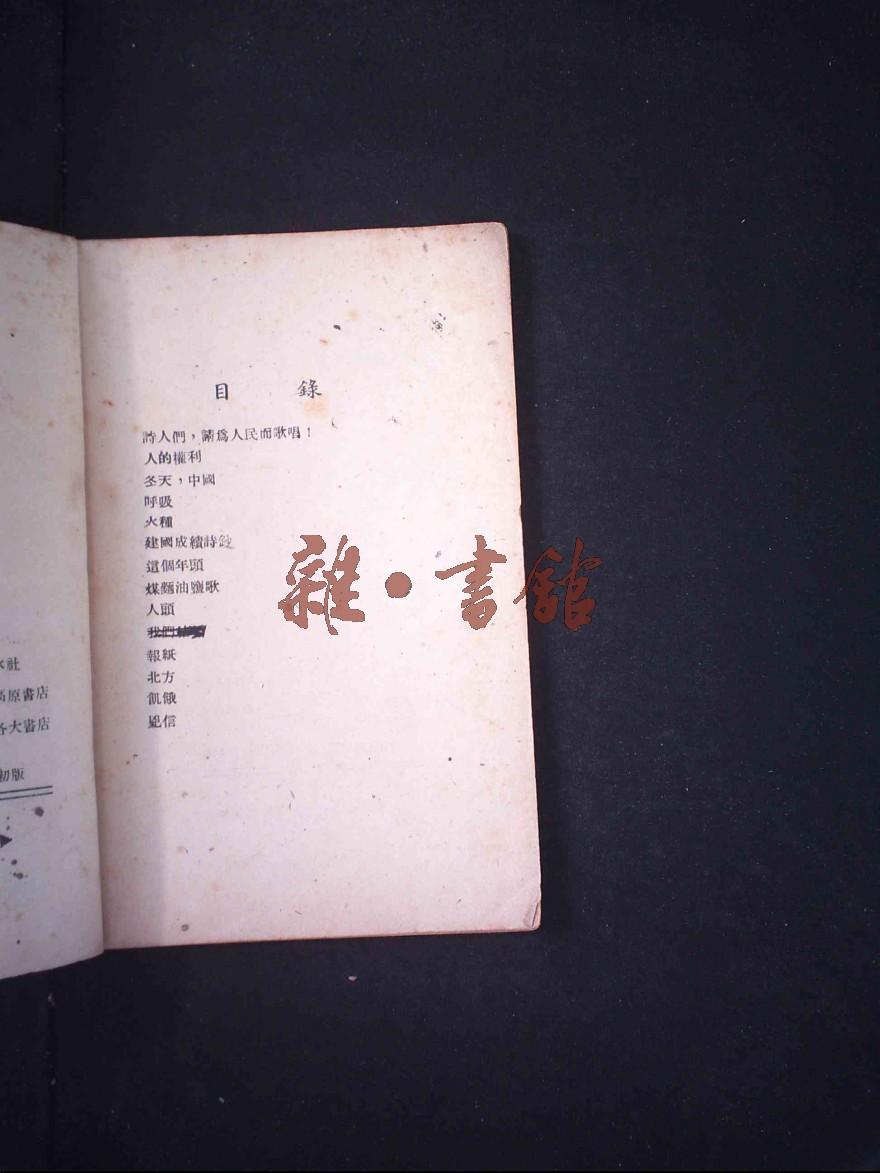 目錄
詩人們，請為人民而歌唱！
人的權利
冬天，中國
呼吸
火種
建國成績詩鈔
這個年頭
煤麵油鹽歌
人頭
我們
報紙
北方
飢餓
風信
社
高原書店
各大書店
初版
雜•書舘